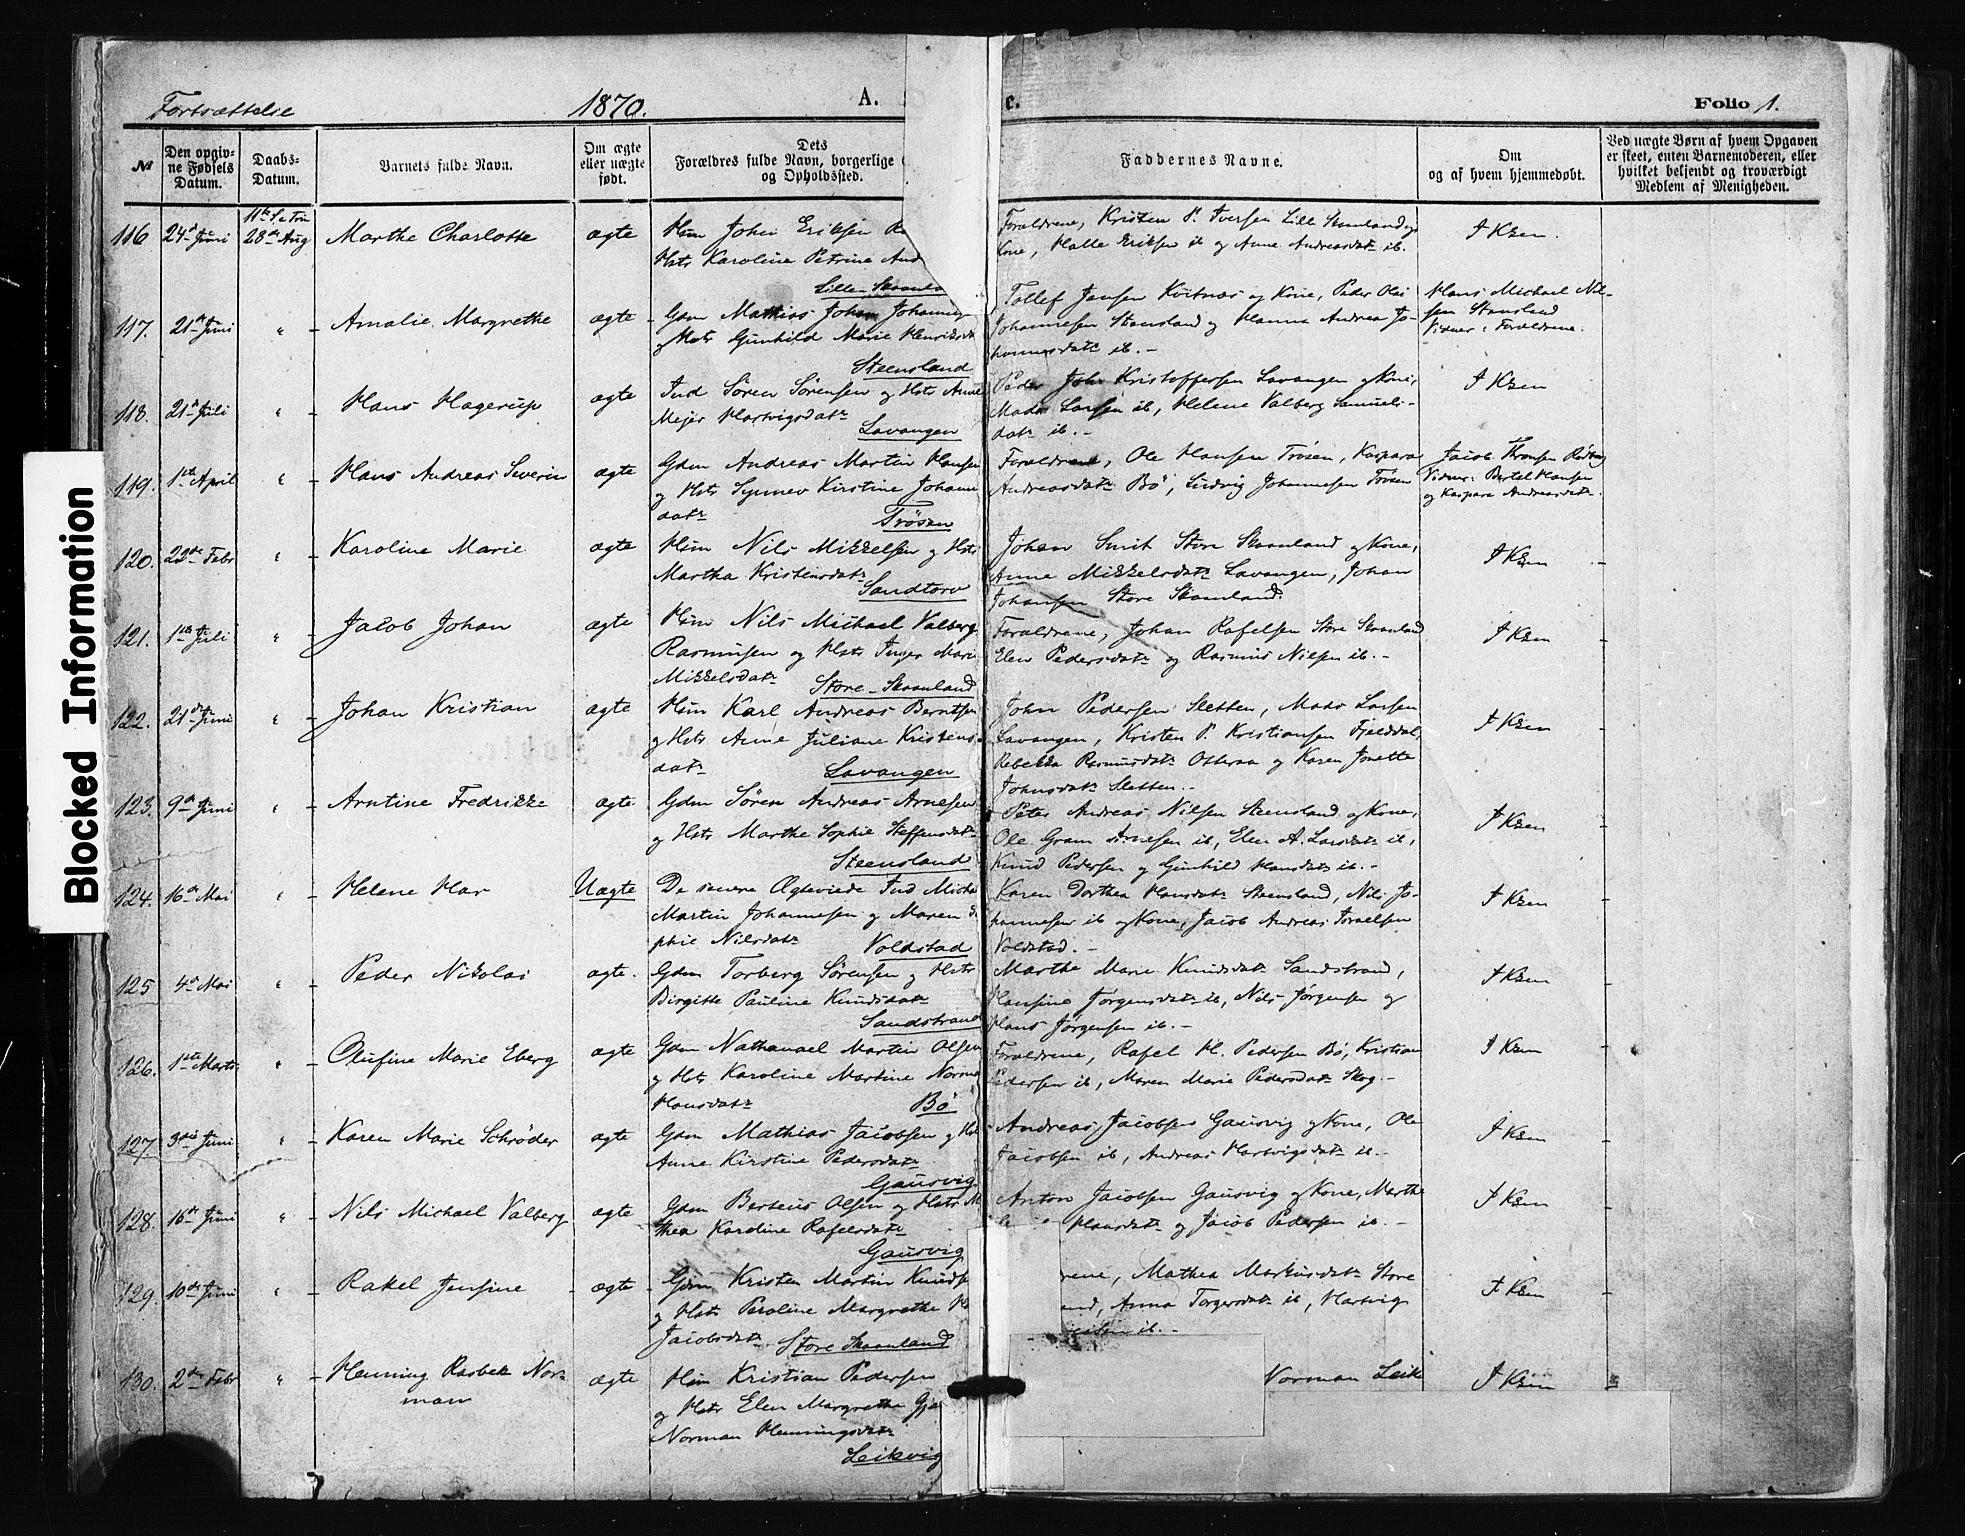 Fortsættelse 1870. A. c. Folio 1.
№
Den opgiv-
ne Fødsels
Datum.
Daabs-
Datum.
Barnets fulde Navn.
Om ægte
eller uægte
født.
Dets
Forældres fulde Navn, borgerlige
og Opholdssted.
Faddernes Navne.
Om
og af hvem hjemmedøbt.
Ved uægte Børn af hvem Opgaven
er skeet, enten Barnemoderen, eller
hvilket bekjendt og troværdigt
Medlem af Menigheden.
Blocked Information
116 24de Juni 28de Aug Marthe Charlotte ægte
John Eriksen
Hstr Karoline Petrine And
Lille-Skaanla
Forældrene, Kristen P. Iversen Lille Skaanland og
Kone, Halle Eriksen ib og Anne Andreasdatr ib.
I Kken.
117. 21de Juni " Amalie Margrethe ægte
Gdm Mathias Johan Johannes
og Hstr Gunhild Marie Henriksdat
Steensland
Tollef Jensen Kvitnæs og Kone, Peder Olai
Johannesen Stensland og Hanna Andrea Jo-
hannesdatr ib. -
Hans Michael Nil-
sen Stensland
Vidner: Forældrene.
118. 21de Juli " Hans Hagerup ægte
Ind Sören Sörensen og Hstr Anne
Mejer Hartvigsdatr
Lavangen
Peder John Kristoffersen Lavangen og Kone,
Mads Larsen ib, Helene Valberg Samuels-
datr ib. -
I Kken
119. 1ste April " Hans Andreas Severin ægte
Gdm Andreas Martin Hansen
og Hstr Synnev Kirstine Johann
datr
Trösen
Forældrene, Ole Hansen Trösen, Kaspara
Andreasdatr Bö, Ludvig Johannesen Trösen
Jacob Thronsen
Vidner: Bertel Hansen
og Kaspara Andreasdatr.
120. 22de Febr " Karoline Marie ægte
Huus Nils Mikkelsen og Hstr
Martha Kristensdatr
Sandtorv
Johan Smit Store Skaanland og Kone,
Anne Mikkelsdatr Lavangen, Johan
Johansen Store Skaanland.
I Kken
121. 1ste Juli " Jacob Johan ægte
Nils Michael Valberg
Rasmusen og Hstr Inger Marie
Mikkelsdatr
Store-Skaanland
Forældrene, Johan Rafelsen Store Skaanland
Elen Pedersdatr og Rasmus Nilsen ib. -
I Kken
122. 21de Juni " Johan Kristian ægte
Karl Andreas Berntsen
og Hstr Anne Juliane Kristens
datr
Lavangen
John Pedersen Sletten, Mads Larsen
Lavangen, Kristen P. Kristiansen Fjelddal,
Rebekka Rasmusdatr Otteraa og Karen Jonette
Johnsdatr Sletten. -
I Kken
123. 9de Juni " Arntine Fredrikke ægte
Gdm Sören Andreas Arnesen
og Hstr Marthe Sophie Steffensdatr
Steensland
Peter Andreas Nilsen Steensland og Kone,
Ole Gram Arnesen ib, Elen A. Larsdatr ib,
Knud Pedersen og Gunhild Hansdatr ib. -
I Kken
124. 16de Mai " Helene Har Uægte
De senere Ægteviede Ind Micha
Martin Johannesen og Maren
phie Nilsdatr
Voldstad
Karen Dorthea Hansdatr Steensland, Nils Jo-
hannesen ib og Kone, Jacob Andreas Israelsen
Voldstad. -
I Kken
125 4de Mai " Peder Nikolai ægte.
Gdm Torberg Sörensen og Hstr
Birgitte Pauline Knudsdatr
Sandstrand
Marthe Marie Knudsdatr Sandstrand,
Hansine Jörgensdatr ib, Nils Jörgensen og
Hans Jörgensen ib. -
I Kken
126. 1ste Marts " Olufine Marie Eberg ægte
Gdm Nathanael Martin Olsen
og Hstr Karoline Martine Norma
Hansdatr
Bö
Forældrene, Rafel H. Pedersen Bö, Kristian
Pedersen ib, Maren Marie Pedersdatr Skog. -
I Kken
127. 3die Juni " Karen Marie Schröder ægte
Gdm Mathias Jacobsen og Hst
Anne Kirstine Pedersdatr
Gausvig
Andreas Jacobsen Gausvig og Kone, Ole
Jacobsen ib, Andreas Hartvigsdatr ib. -
I Kken
128. 16de Juni " Nils Michael Valberg ægte
Gdm Berteus Olsen og Hstr M
thea Karoline Rafelsdatr
Gausvig
Anton Jacobsen Gausvig og Kone, Marthe
Hansdatr og Jacob Pedersen ib. -
I Kken
129. 10de Juni " Rakel Jensine ægte
Gdm Kristen Martin Knuds
og Hstr Peroline Margrethe
Jacobsdatr Store Skaanland
rene, Mathea Markusdatr Store
and, Anna Torgersdatr ib, Hartvig
ib. -
I Kken
130. 2den Febr " Henning Rasbek Nor-
man
ægte
Kristian Pedersen
og Hstr Elen Margrethe Gja
Norman Henningsdatr
Leikvig
Norman Leik
I Kken